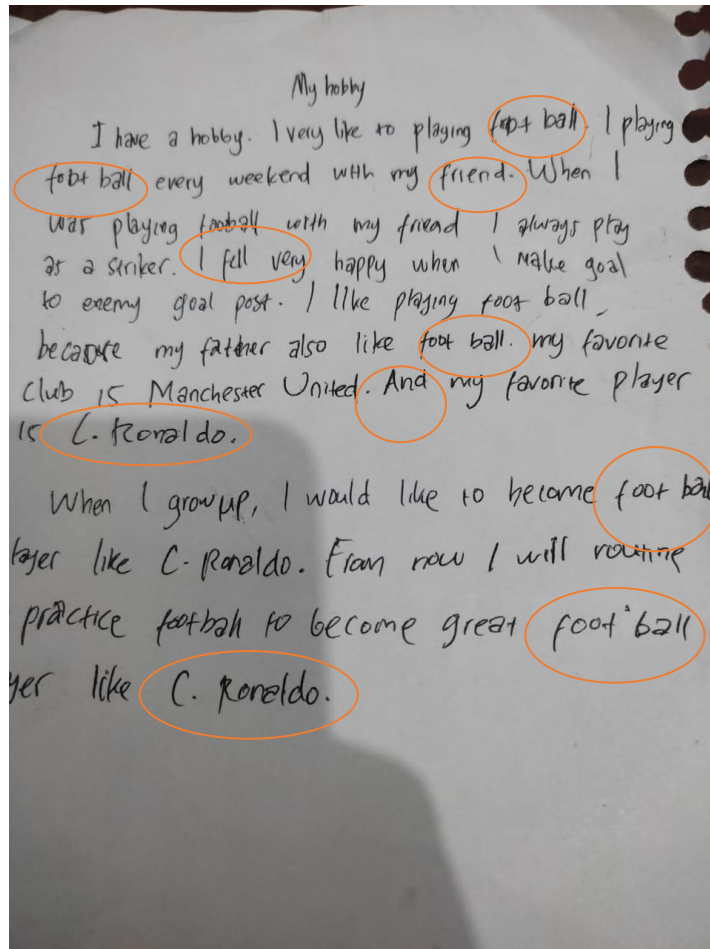 My hobby
I have a hobby. I very like to playing foot ball. I playing
foot ball every weekend with my friend. When I
was playing fooball with my friend I always play
as a striker. I fell very happy when I make goal
to enemy goal post. I like playing foot ball
because my father also like foot ball. my favorite
club is Manchester United. And my favorite player
is C. Ronaldo.
When I grow up, I would like to become foot ball
layer like C. Ronaldo. From now I will routine
practice football to become great foot ball
yer like C. Ronaldo.